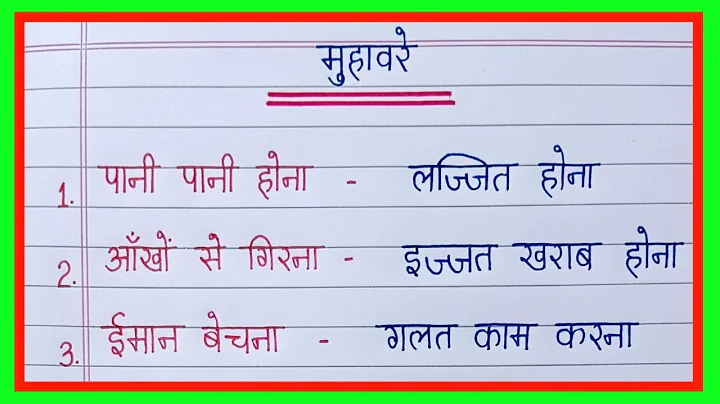 मुहावरे
1. पानी पानी होना - लज्जित होना
2. आँखों से गिरना - इज्जत खराब होना
3. ईमान बेचना - गलत काम करना